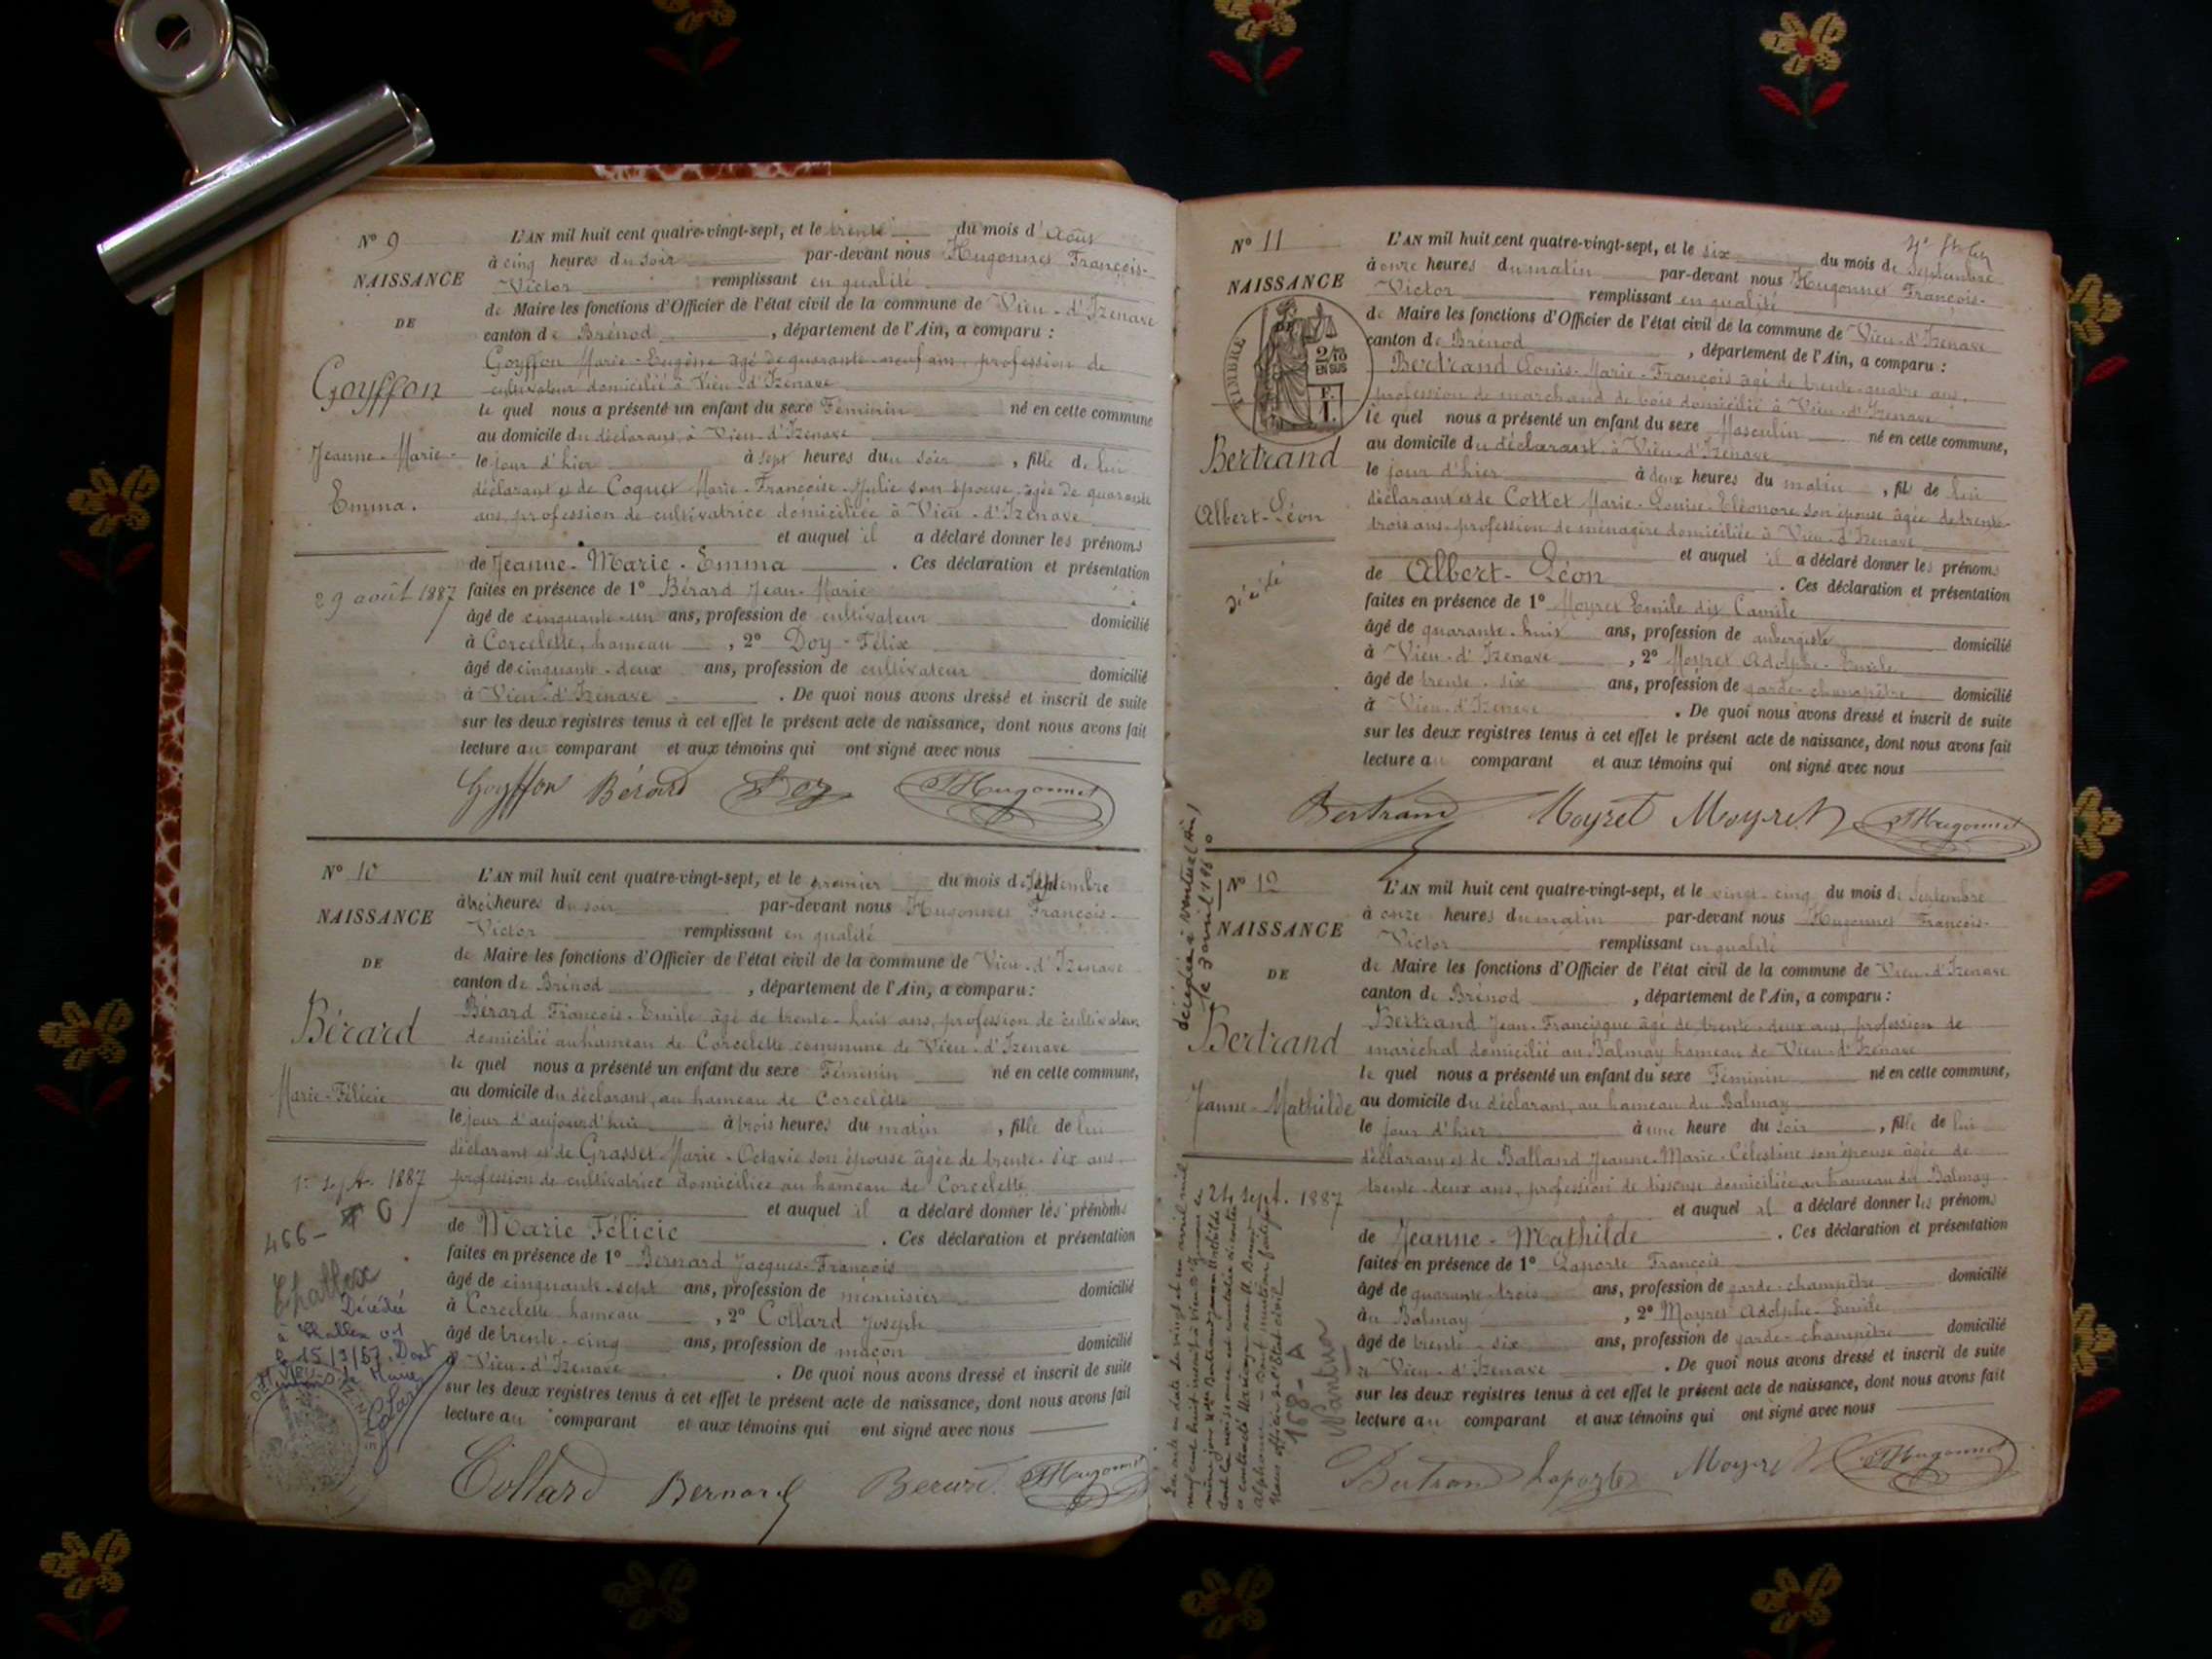 N° 9
NAISSANCE
DE
Goyffon
Jeanne-Marie-
Emma.
29 août 1887
L'AN mil huit cent quatre-vingt-sept, et le trente du mois d'Août
à cinq heures du soir par-devant nous Hugonnet François-
Victor remplissant en qualité
de Maire les fonctions d'Officier de l'état civil de la commune de Vieu-d'Izenave
canton de Brénod, département de l'Ain, a comparu :
Goyffon Marie-Eugène âgé de quarante-neuf ans, profession de
cultivateur domicilié à Vieu-d'Izenave
le quel nous a présenté un enfant du sexe Féminin né en cette commune
au domicile du déclarant, à Vieu-d'Izenave
le jour d'hier à sept heures du soir, fille de lui
déclarant et de Coquet Marie-Françoise-Julie son épouse, âgée de quarante
ans, profession de cultivatrice domiciliée à Vieu-d'Izenave
et auquel il a déclaré donner les prénoms
de Jeanne-Marie-Emma. Ces déclaration et présentation
faites en présence de 1° Bérard Jean-Marie
âgé de cinquante-un ans, profession de cultivateur domicilié
à Corcelette, hameau, 2° Doy-Félix
âgé de cinquante-deux ans, profession de cultivateur domicilié
à Vieu-d'Izenave. De quoi nous avons dressé et inscrit de suite
sur les deux registres tenus à cet effet le présent acte de naissance, dont nous avons fait
lecture au comparant et aux témoins qui ont signé avec nous
Goyffon Bérard Doy Hugonnet
N° 10
NAISSANCE
DE
Bérard
Marie-Félicie
1er sept. 1887
466 - 0
Challex
Décédée
à Challex 01
le 15/3/67. Dont
mention le Maire
L'AN mil huit cent quatre-vingt-sept, et le premier du mois de Septembre
à trois heures du soir par-devant nous Hugonnet François-
Victor remplissant en qualité
de Maire les fonctions d'Officier de l'état civil de la commune de Vieu-d'Izenave
canton de Brénod, département de l'Ain, a comparu :
Bérard François-Emile âgé de trente-huit ans, profession de cultivateur
domicilié au hameau de Corcelette commune de Vieu-d'Izenave
le quel nous a présenté un enfant du sexe Féminin né en cette commune,
au domicile du déclarant, au hameau de Corcelette
le jour d'aujourd'hui à trois heures du matin, fille de lui
déclarant et de Grasset Marie-Octavie son épouse âgée de trente-six ans
profession de cultivatrice domiciliée au hameau de Corcelette
et auquel il a déclaré donner les prénoms
de Marie Félicie. Ces déclaration et présentation
faites en présence de 1° Bernard Jacques-François
âgé de cinquante-sept ans, profession de menuisier domicilié
à Corcelette hameau, 2° Collard Joseph
âgé de trente-cinq ans, profession de maçon domicilié
à Vieu-d'Izenave. De quoi nous avons dressé et inscrit de suite
sur les deux registres tenus à cet effet le présent acte de naissance, dont nous avons fait
lecture au comparant et aux témoins qui ont signé avec nous
Collard Bernard Berard Hugonnet
N° 11
NAISSANCE
DE
TIMBRE
2/10
EN SUS
Bertrand
Albert-Léon
L'AN mil huit cent quatre-vingt-sept, et le six du mois de Septembre
à onze heures du matin par-devant nous Hugonnet François-
Victor remplissant en qualité
de Maire les fonctions d'Officier de l'état civil de la commune de Vieu-d'Izenave
canton de Brénod, département de l'Ain, a comparu :
Bertrand Louis-Marie-François âgé de trente-quatre ans,
profession de marchand de bois domicilié à Vieu-d'Izenave
le quel nous a présenté un enfant du sexe Masculin né en cette commune,
au domicile du déclarant, à Vieu-d'Izenave
le jour d'hier à deux heures du matin, fils de lui
déclarant et de Cottet Marie-Louise-Eléonore son épouse âgée de trente-
trois ans profession de ménagère domiciliée à Vieu-d'Izenave
et auquel il a déclaré donner les prénoms
de Albert-Léon. Ces déclaration et présentation
faites en présence de 1° Moyret Emile dit Camile
âgé de quarante-huit ans, profession de aubergiste domicilié
à Vieu-d'Izenave, 2° Moyret Adolphe-Emile
âgé de trente-six ans, profession de garde-champêtre domicilié
à Vieu-d'Izenave. De quoi nous avons dressé et inscrit de suite
sur les deux registres tenus à cet effet le présent acte de naissance, dont nous avons fait
lecture au comparant et aux témoins qui ont signé avec nous
Bertrand Moyret Moyret Hugonnet
N° 12
NAISSANCE
DE
Bertrand
Jeanne-Mathilde
24 sept. 1887
le 3 avril 1960
168 - A
Nantua
L'AN mil huit cent quatre-vingt-sept, et le vingt-cinq du mois de Septembre
à onze heures du matin par-devant nous Hugonnet François-
Victor remplissant en qualité
de Maire les fonctions d'Officier de l'état civil de la commune de Vieu-d'Izenave
canton de Brénod, département de l'Ain, a comparu :
Bertrand Jean-Francisque âgé de trente-deux ans, profession de
maréchal domicilié au Balmay hameau de Vieu-d'Izenave
le quel nous a présenté un enfant du sexe Féminin né en cette commune,
au domicile du déclarant, au hameau du Balmay
le jour d'hier à une heure du soir, fille de lui
déclarant et de Balland Jeanne-Marie-Célestine son épouse âgée de
trente-deux ans, profession de tisseuse domiciliée au hameau du Balmay
et auquel il a déclaré donner les prénoms
de Jeanne-Mathilde. Ces déclaration et présentation
faites en présence de 1° Laporte François
âgé de quarante-trois ans, profession de garde-champêtre domicilié
au Balmay, 2° Moyret Adolphe-Emile
âgé de trente-six ans, profession de garde-champêtre domicilié
à Vieu-d'Izenave. De quoi nous avons dressé et inscrit de suite
sur les deux registres tenus à cet effet le présent acte de naissance, dont nous avons fait
lecture au comparant et aux témoins qui ont signé avec nous
Bertrand Laporte Moyret Hugonnet